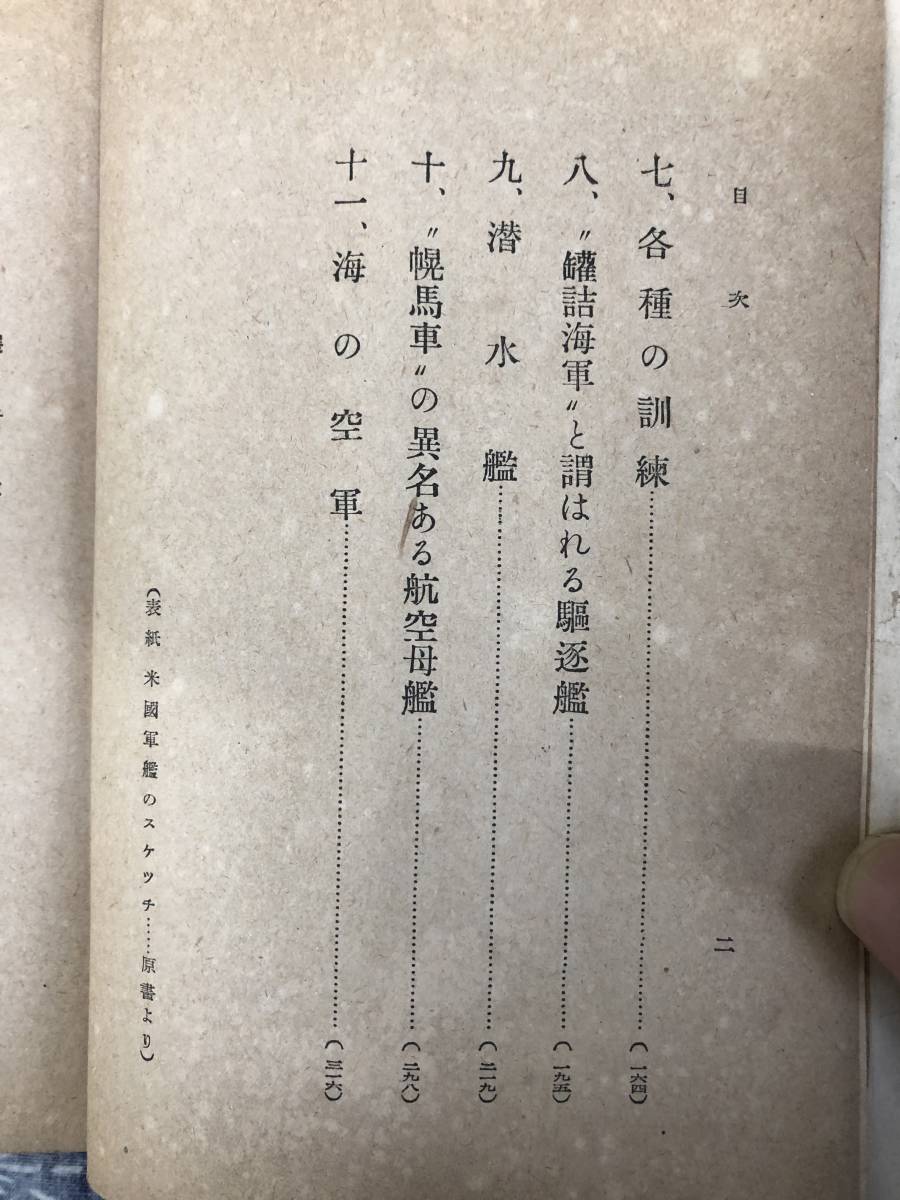 目次
二
七、各種の訓練……………………(一六四)
八、〝罐詰海軍〟と謂はれる驅逐艦……………………(一九五)
九、潜水艦……………………(二一九)
十、〝幌馬車〟の異名ある航空母艦……………………(二九八)
十一、海の空軍……………………(三一六)
(表紙 米國軍艦のスケッチ……原書より)